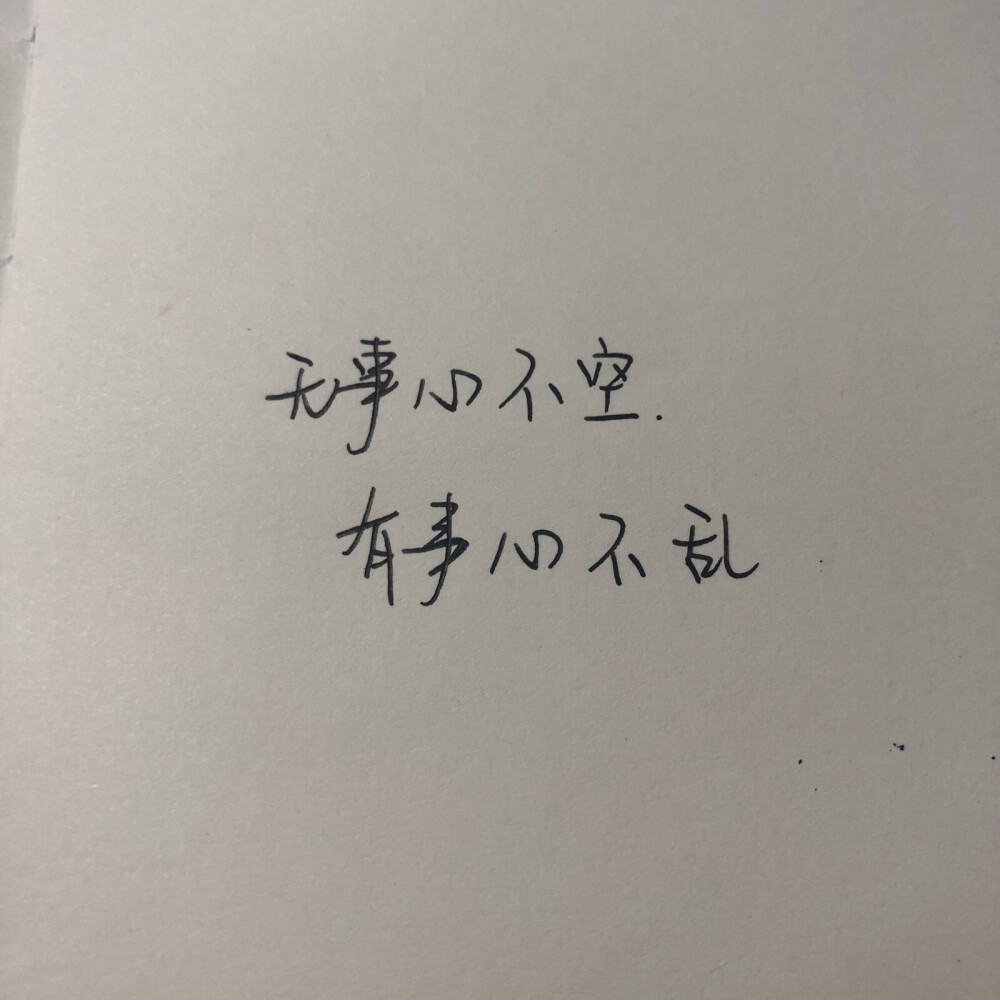 无事心不空.
有事心不乱